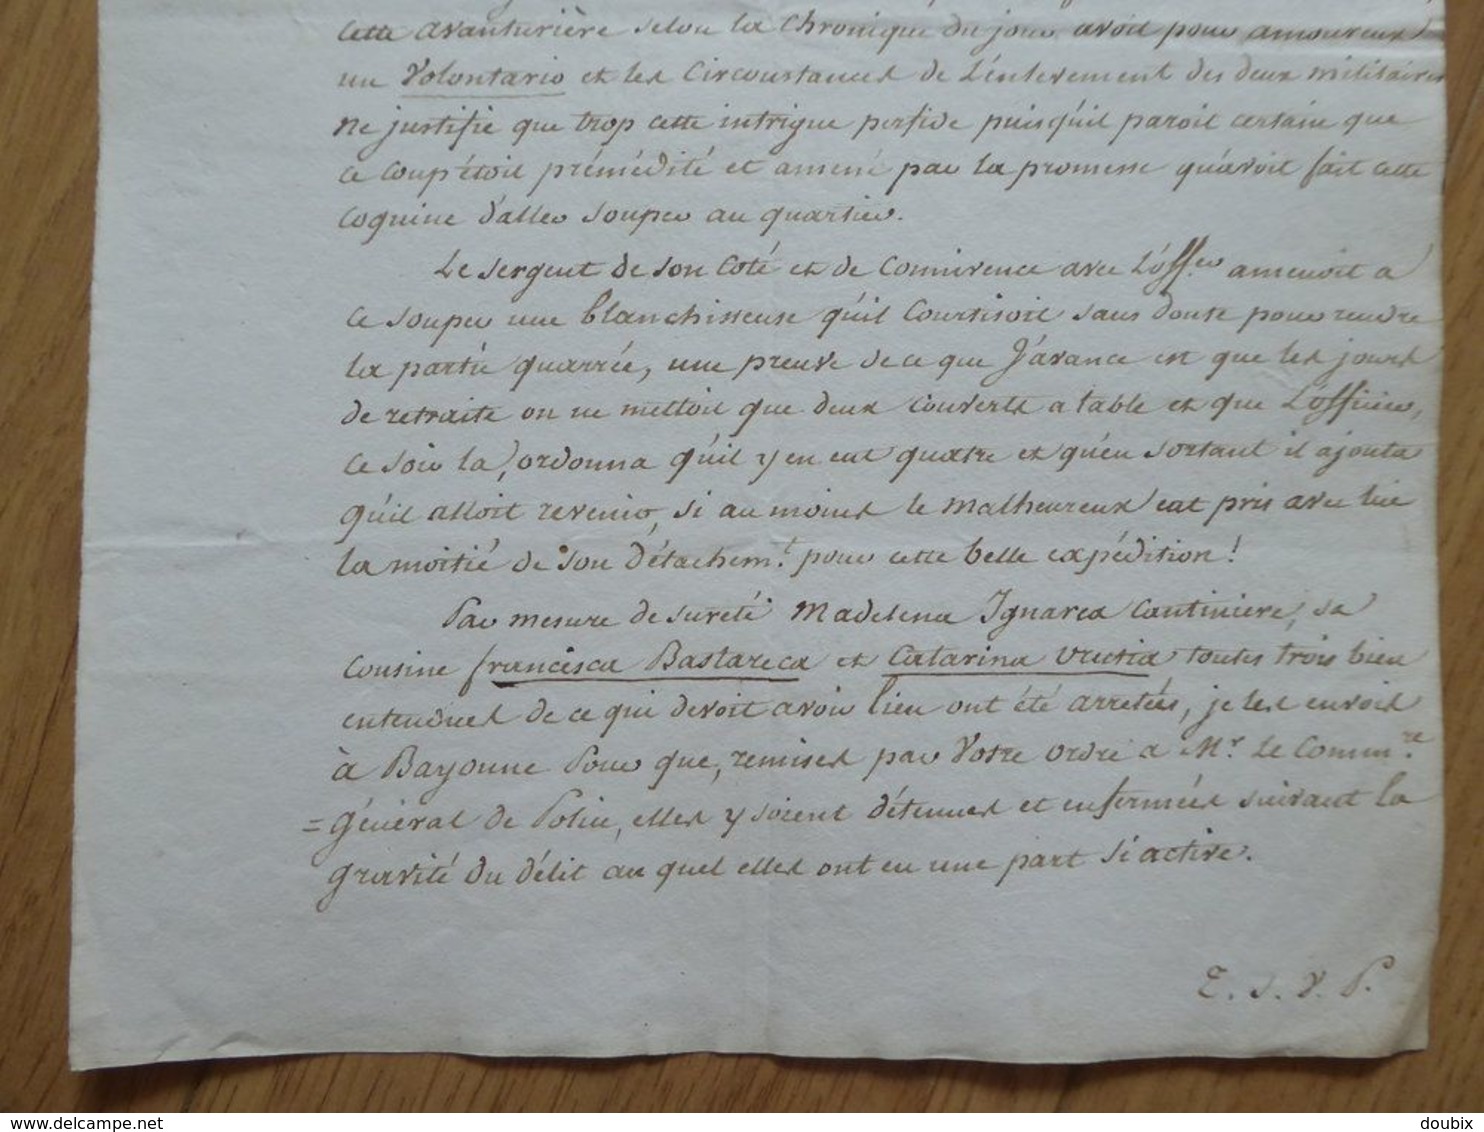 cette avanturière selon la Chronique du jour avoit pour amoureux
un Volontario et les Circonstances de L'enlevement des deux militaires
ne justifie que trop cette intrigue perfide puisqu'il paroit certain que
ce coup étoit prémédité et amené par la promesse qu'avoit fait cette
coquine d'aller souper au quartier.
Le sergent de son Coté et de Connivence avec L'offer amenoit a
ce souper une blanchisseuse qu'il Courtisoit sans doute pour rendre
la partie quarrée, une preuve de ce que J'avance est que les jours
de retraite on ne mettoit que deux couverts a table et que L'officier,
ce soir la, ordonna qu'il y en eut quatre et qu'en sortant il ajouta
qu'il alloit revenir, si au moins le malheureux eut pris avec lui
la moitié de son Détachem.t pour cette belle expédition!
Par mesure de sureté Madelena Ignarea Cantiniere, sa
cousine francisca Bastareca et Catarina Urutia toutes trois bien
entendues de ce qui devoit avoir lieu ont été arretées, je les envois
à Bayonne Pour que, remises par Votre ordre a Mr. Le Comm.re
= Général de Police, elles y soient détenues et enfermées suivant la
gravité du délit au quel elles ont eu une part si active.
T. S. V. P.
Copyright delcampe.net
doubix